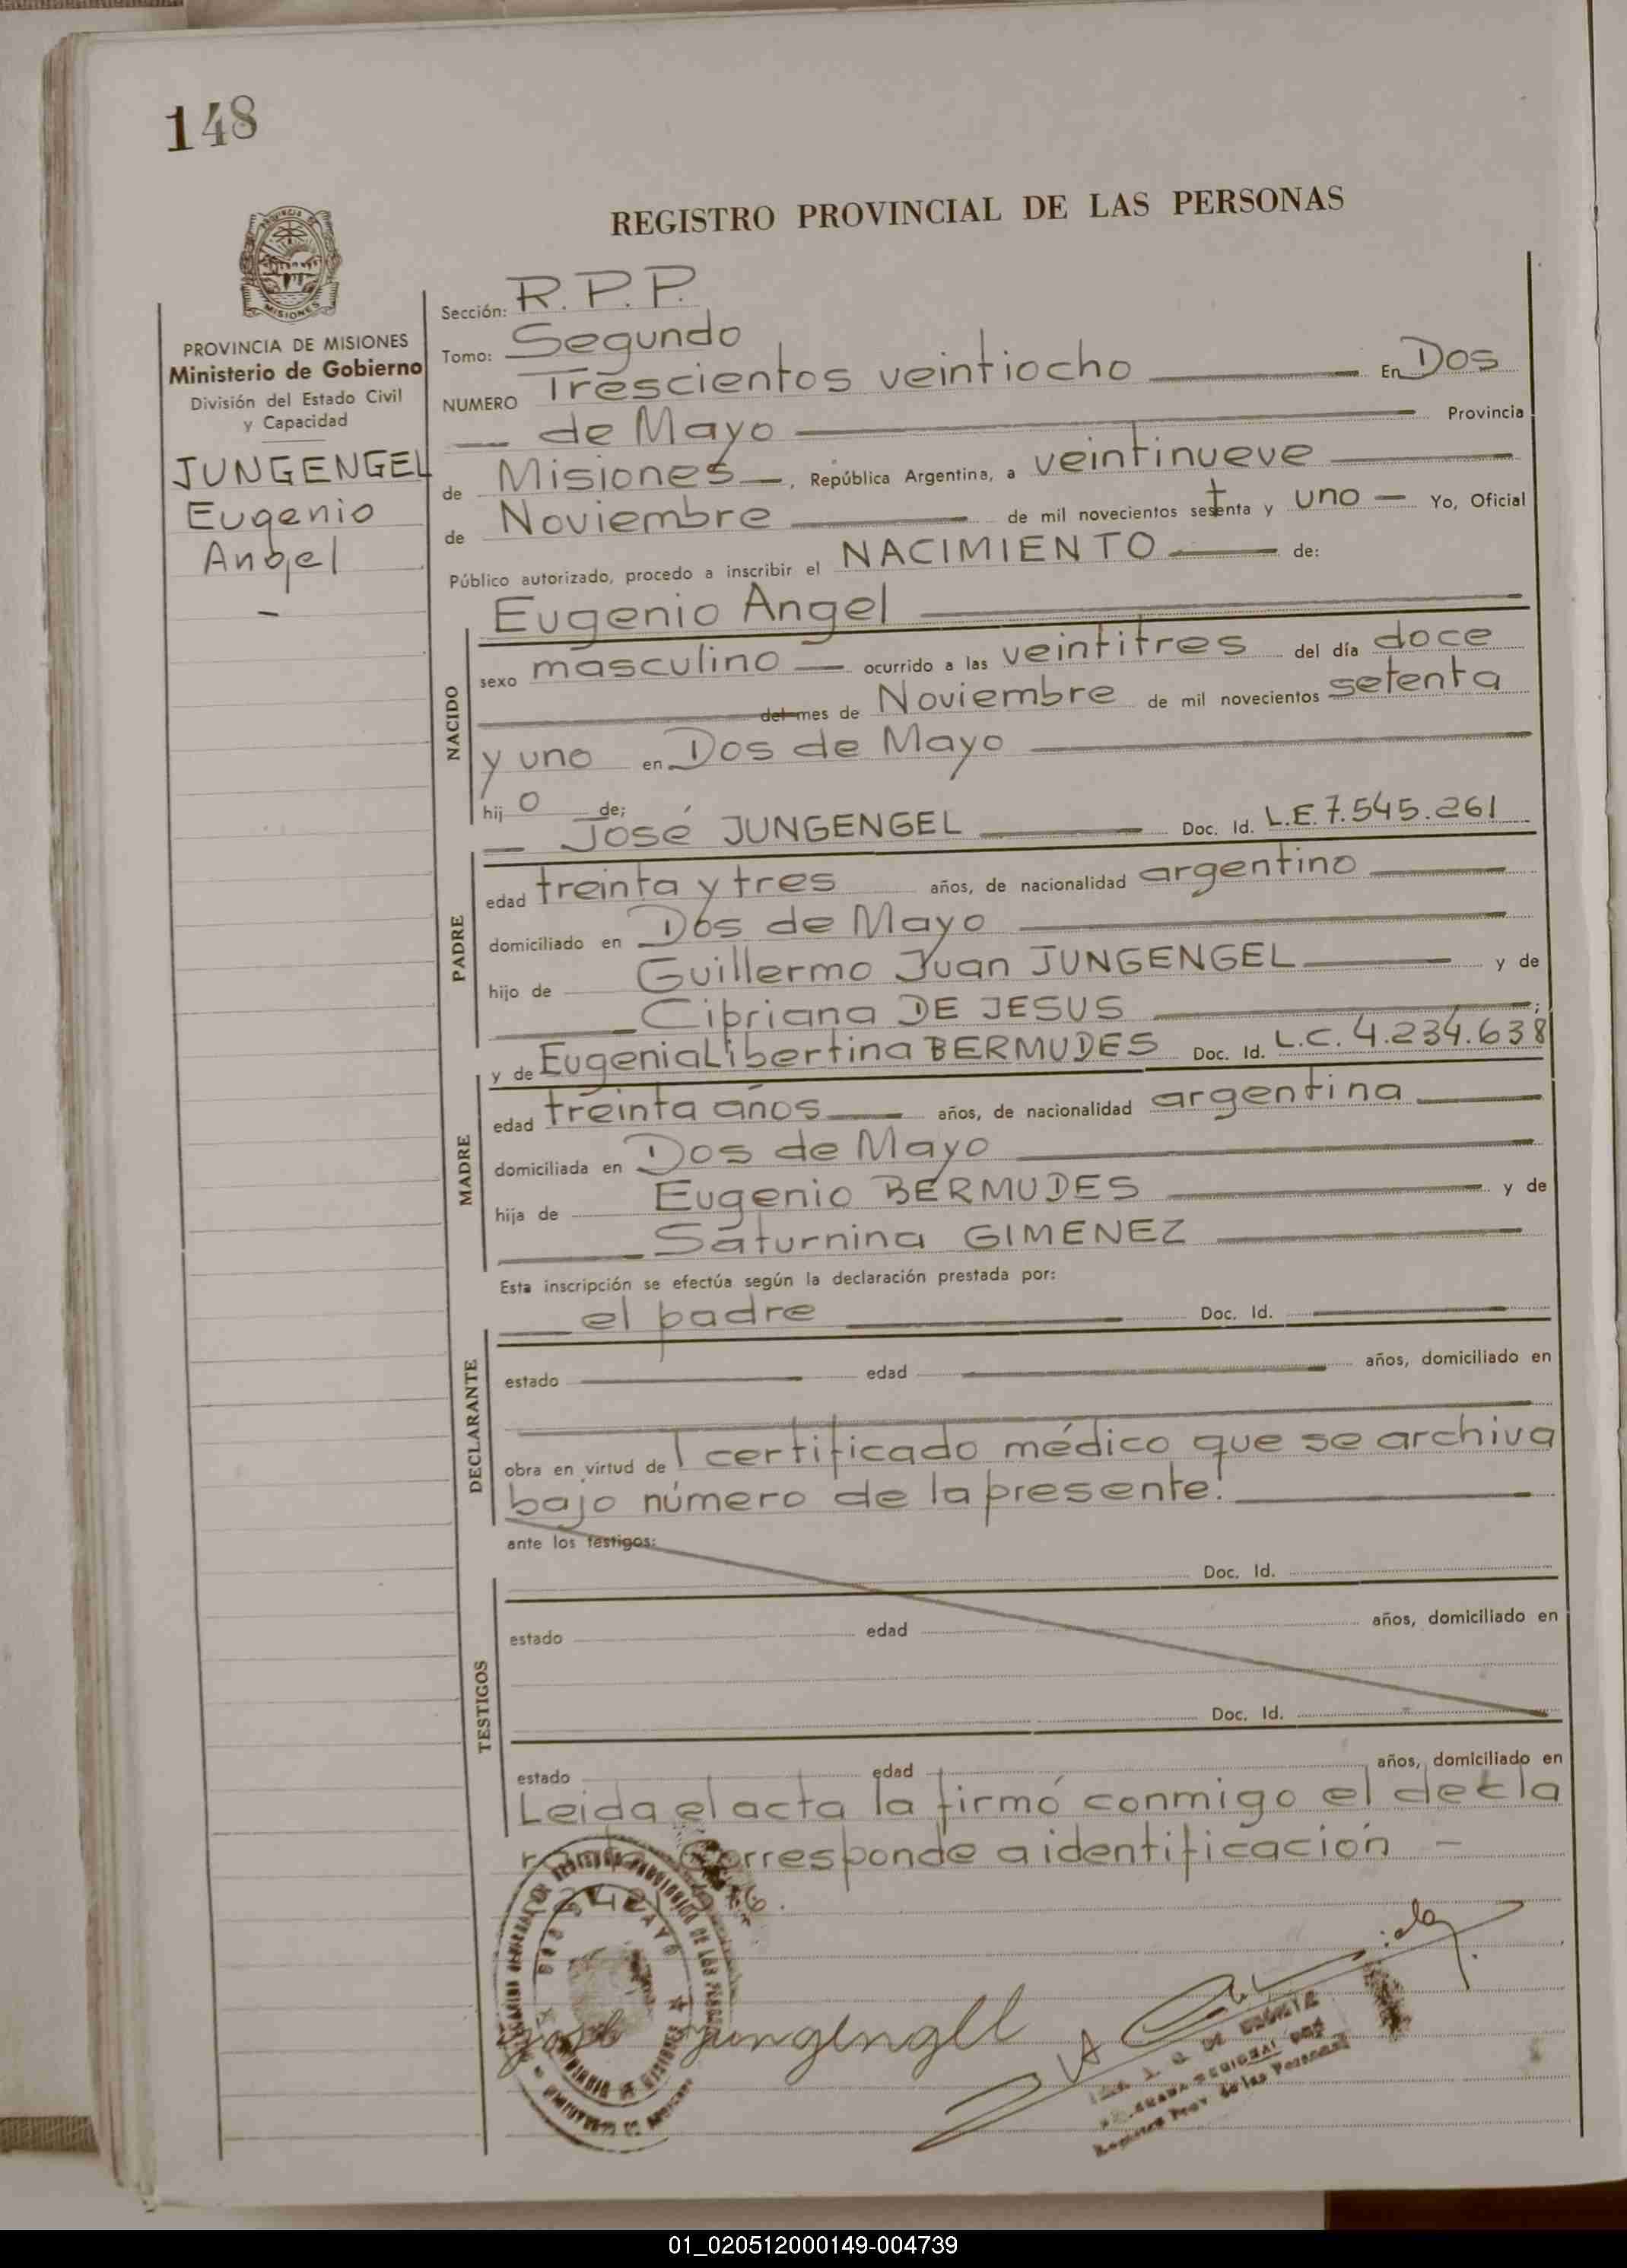 148
REGISTRO PROVINCIAL DE LAS PERSONAS
MISIONES
PROVINCIA DE MISIONES
Ministerio de Gobierno
División del Estado Civil
y Capacidad
JUNGENGEL
Eugenio
Angel
Sección: R.P.P.
Tomo: Segundo
NUMERO Trescientos veintiocho En Dos
de Mayo Provincia
de Misiones, República Argentina, a veintinueve
de Noviembre de mil novecientos setenta y uno Yo, Oficial
Público autorizado, procedo a inscribir el NACIMIENTO de:
Eugenio Angel
NACIDO
sexo masculino ocurrido a las veintitres del día doce
del mes de Noviembre de mil novecientos setenta
y uno en Dos de Mayo
hijo de;
José JUNGENGEL Doc. Id. L.E. 7.545.261
PADRE
edad treinta y tres años, de nacionalidad argentino
domiciliado en Dos de Mayo
hijo de Guillermo Juan JUNGENGEL y de
Cipriana DE JESUS;
y de Eugenia Libertina BERMUDES Doc. Id. L.C. 4.234.638
MADRE
edad treinta años años, de nacionalidad argentina
domiciliada en Dos de Mayo
hija de Eugenio BERMUDES y de
Saturnina GIMENEZ
Esta inscripción se efectúa según la declaración prestada por:
el padre Doc. Id.
DECLARANTE
estado edad años, domiciliado en
obra en virtud de l certificado médico que se archiva
bajo número de la presente.
ante los testigos:
Doc. Id.
TESTIGOS
estado edad años, domiciliado en
Doc. Id.
estado edad años, domiciliado en
Leida el acta la firmó conmigo el decla
rante corresponde a identificación -
DOS DE MAYO
José Jungengel
Registro Prov. de las Personas
01_020512000149-004739